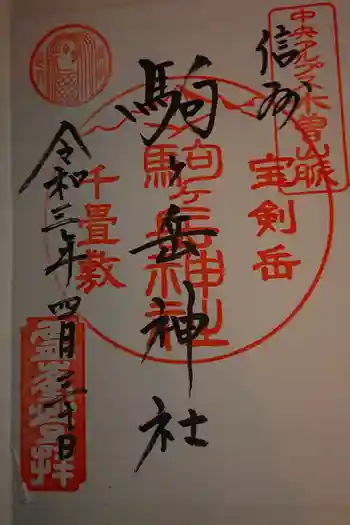 中央アルプス木曽山脈
信州
宝剣岳
駒ヶ岳神社
駒ヶ岳神社
千畳敷
令和三年四月三十日
登拝